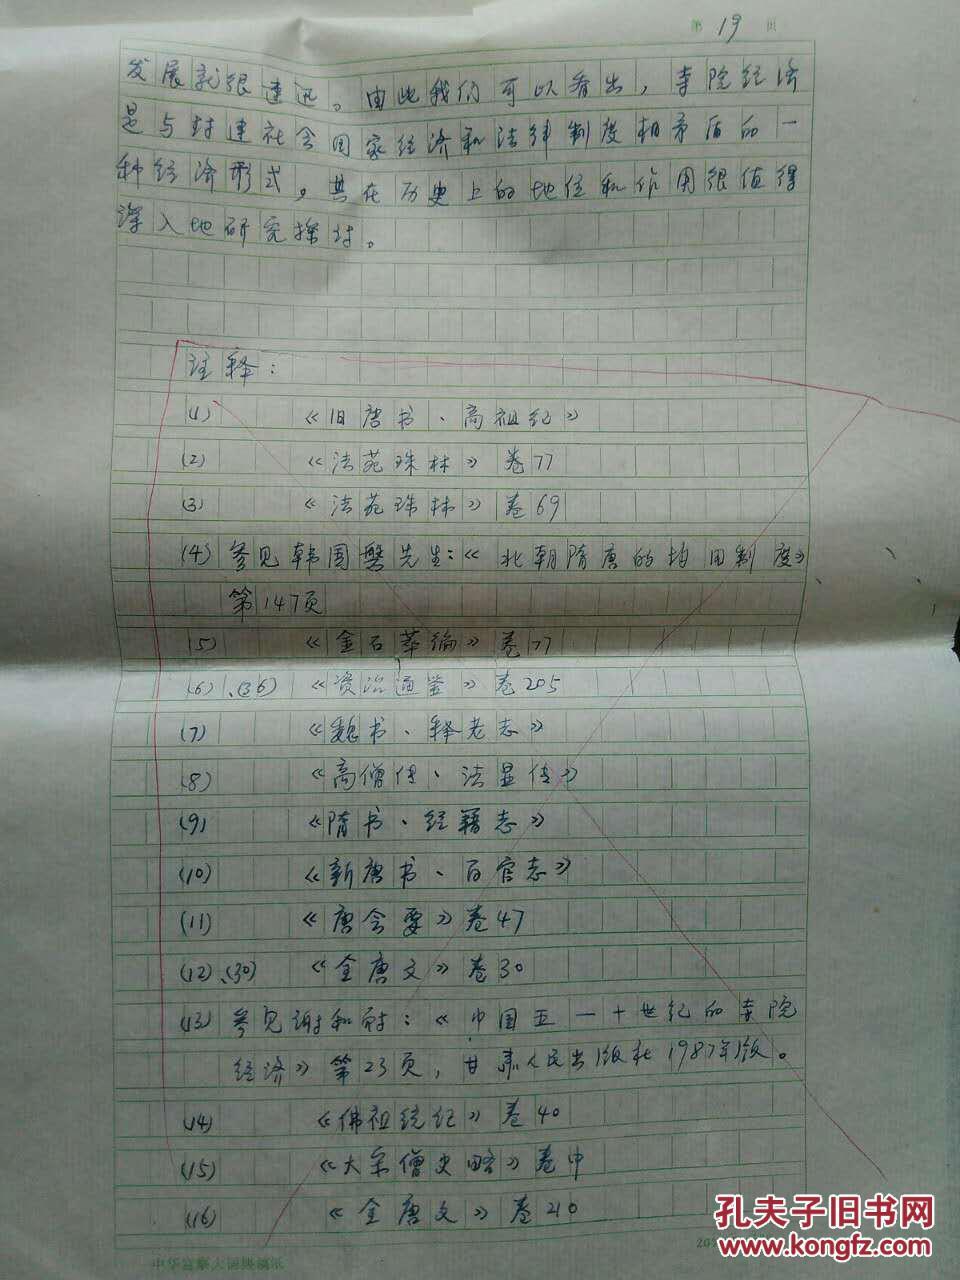 第 19 页
发展就很速迅。由此我们可以看出，寺院经济
是与封建社会国家经济和法律制度相矛盾的一
种经济形式，其在历史上的地位和作用很值得
深入地研究探讨。
注释：
(1) 《旧唐书·高祖纪》
(2) 《法苑珠林》卷77
(3) 《法苑珠林》卷69
(4) 参见韩国磐先生：《北朝隋唐的均田制度》
第147页
(5) 《金石萃编》卷77
(6)、(36) 《资治通鉴》卷205
(7) 《魏书·释老志》
(8) 《高僧传·法显传》
(9) 《隋书·经籍志》
(10) 《新唐书·百官志》
(11) 《唐会要》卷47
(12)、(30) 《全唐文》卷30
(13) 参见谢和耐：《中国五—十世纪的寺院
经济》第23页，甘肃人民出版社1987年版。
(14) 《佛祖统纪》卷40
(15) 《大宋僧史略》卷中
(16) 《全唐文》卷210
孔夫子旧书网
www.kongfz.com